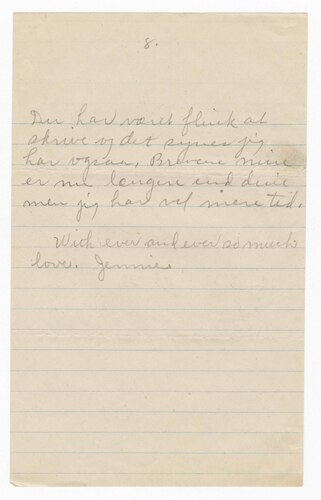 8.
Du har været flink at
skrive og det synes jig
har ogsaa. Brevene mine
er nu længere end dine
men jig har vel mere tid.
With ever and ever so much
love. Jennie.